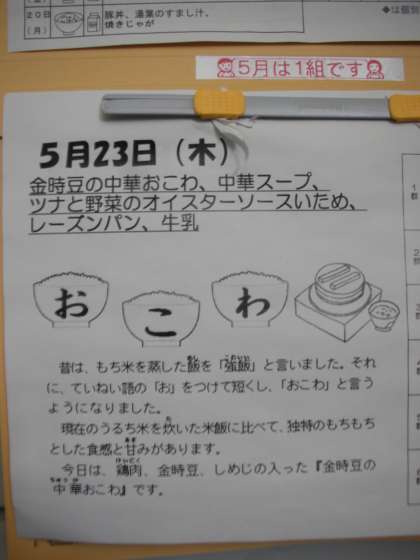 20日
(月)
豚丼、湯葉のすまし汁、
焼きじゃが
◆は個別
5月は1組です
5月23日(木)
金時豆の中華おこわ、中華スープ、
ツナと野菜のオイスターソースいため、
レーズンパン、牛乳
おこわ
昔は、もち米を蒸した飯を「強飯」と言いました。それ
に、ていねい語の「お」をつけて短くし、「おこわ」と言う
ようになりました。
現在のうるち米を炊いた米飯に比べて、独特のもちもち
とした食感と甘みがあります。
今日は、鶏肉、金時豆、しめじの入った『金時豆の
中華おこわ』です。
1
群
2